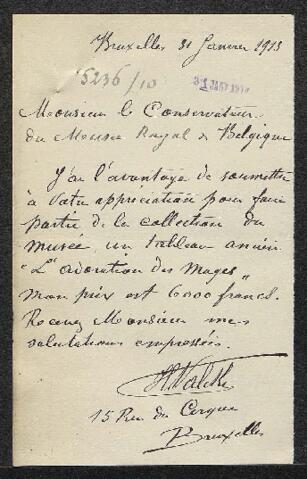 Bruxelles 31 Janvier 1913
5236/10
Monsieur le Conservateur
du Musee Royal de Belgique
J'ai l'avantage de soumettre
à votre appréciation pour faire
partie de la collection du
musee un tableau ancien
"L'adoration des Mages"
mon prix est 6000 francs.
Recevez Monsieur mes
salutations empressées.
15 Rue du Cirque
Bruxelles